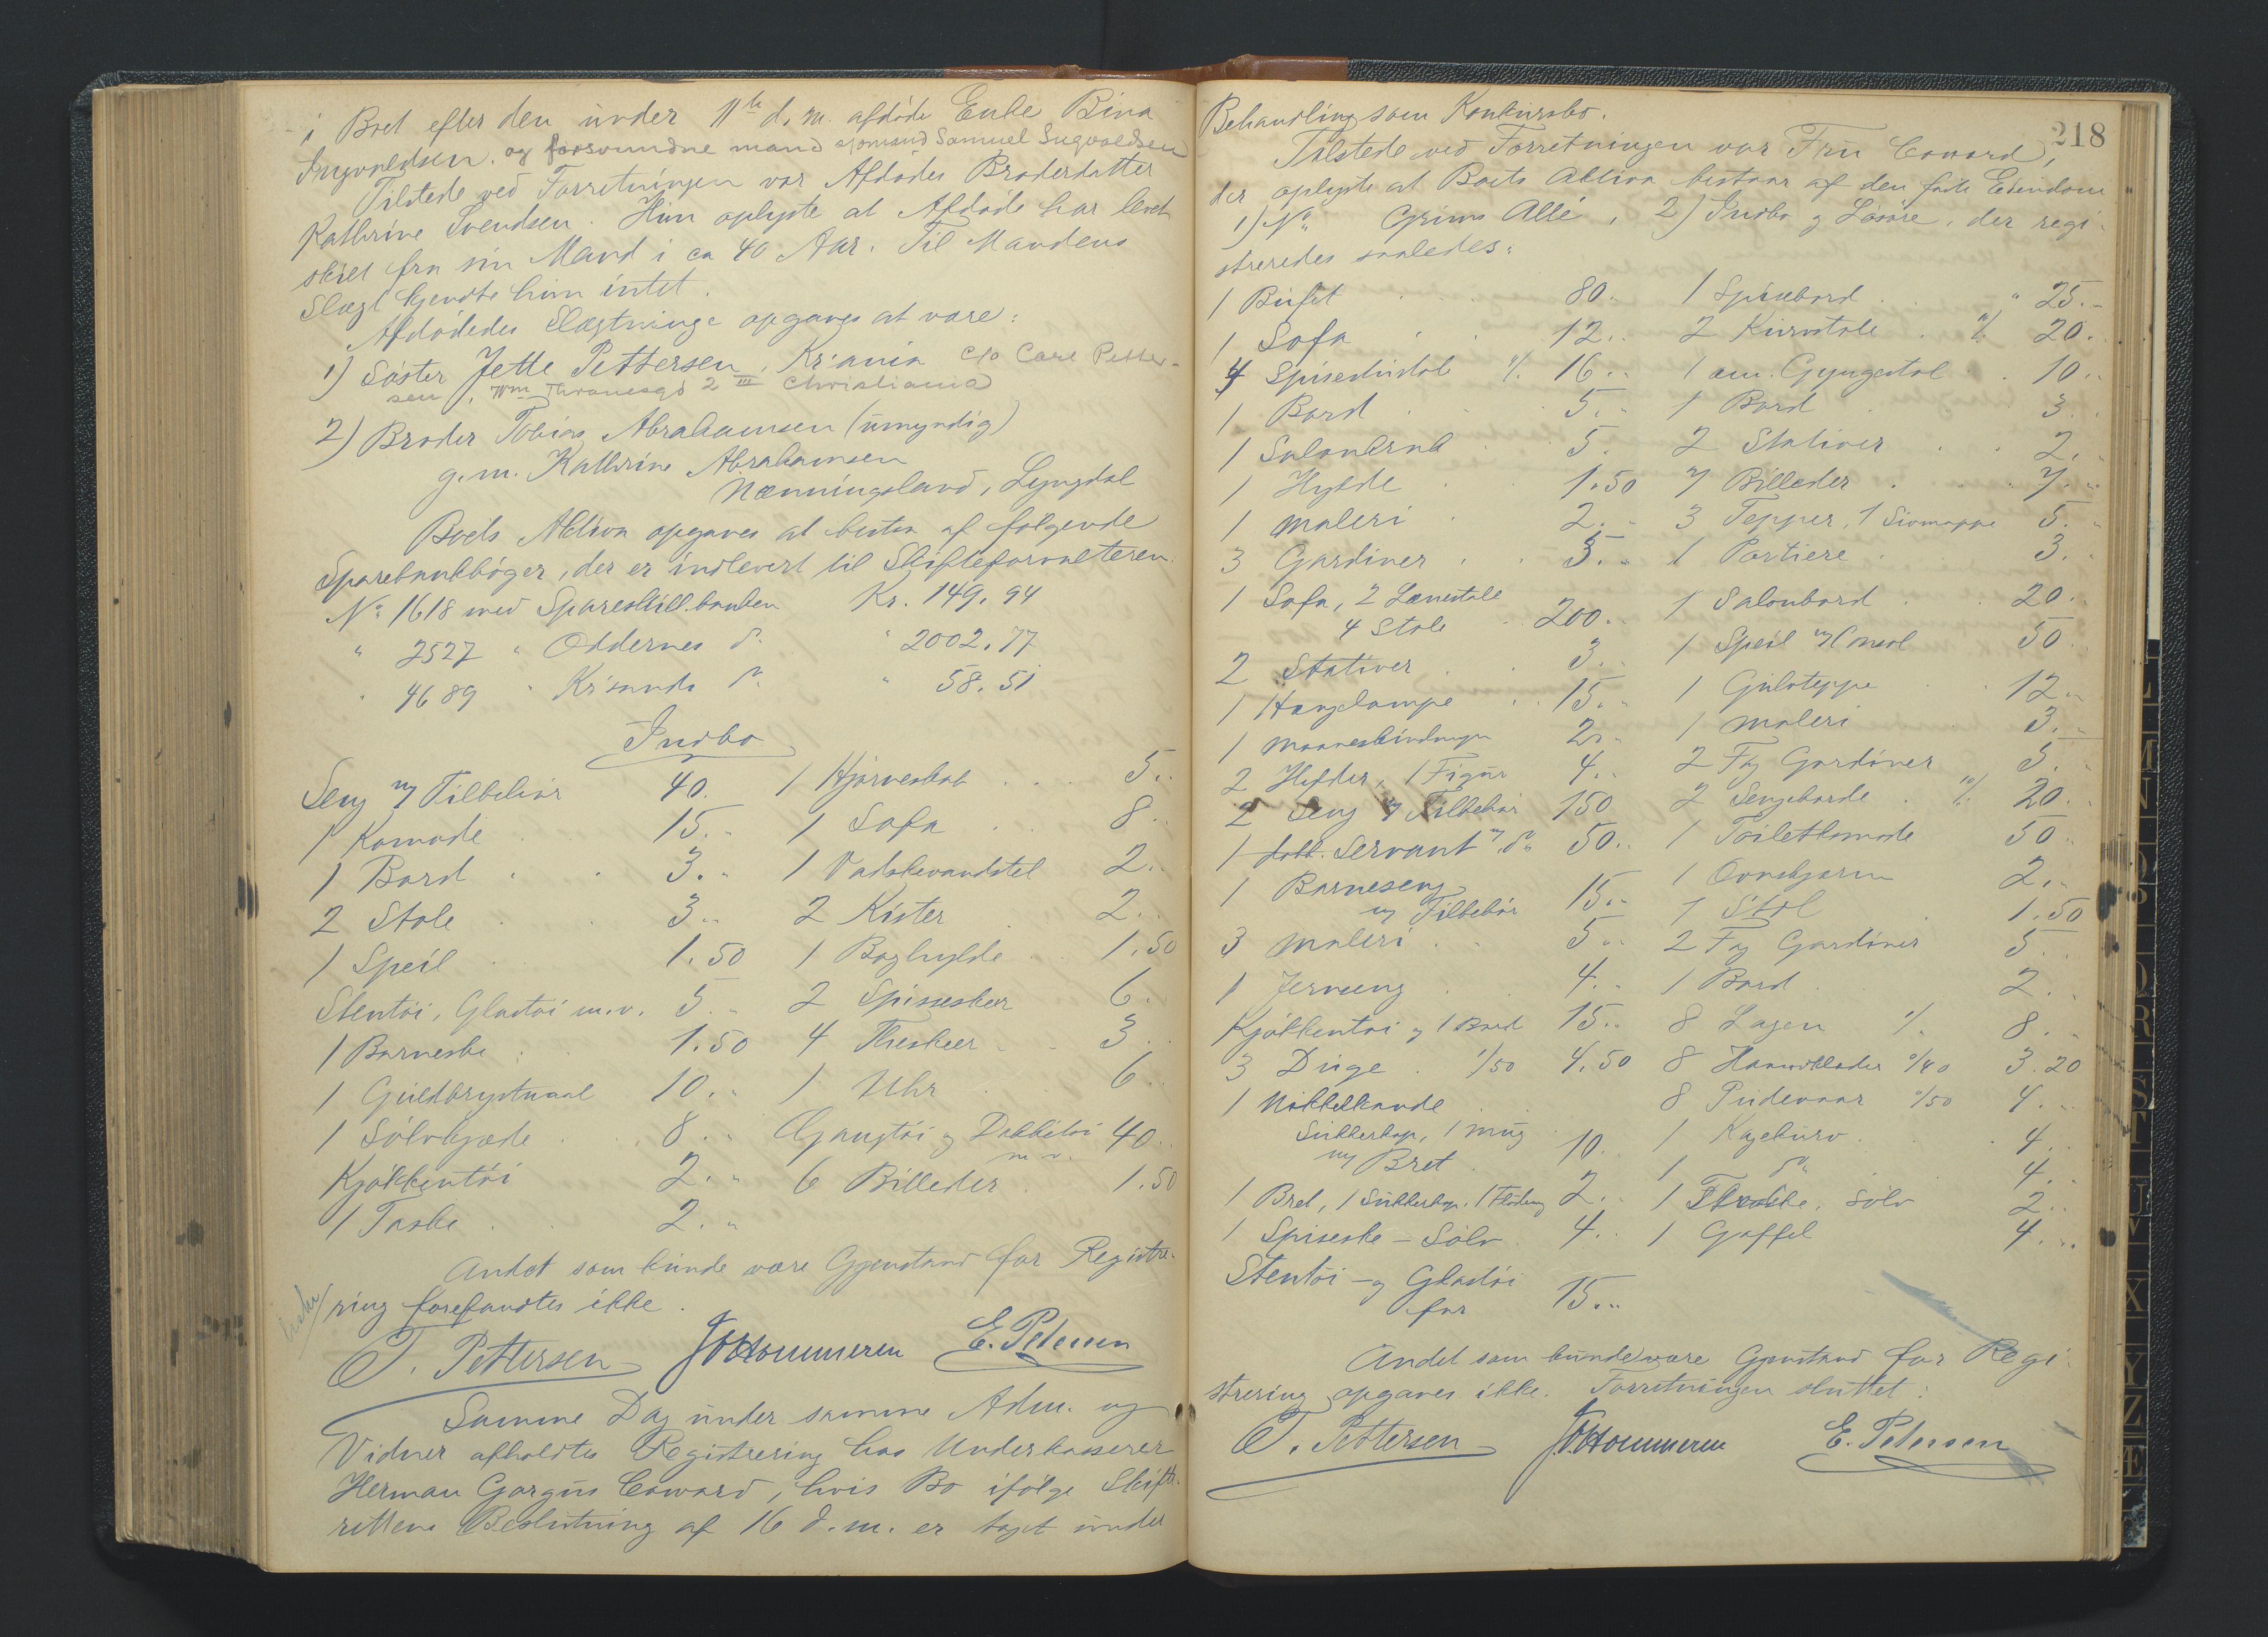 i Boet efter den under 11te d. m. afdøde Enke Bina
Ingvaldsen. og forsvundne mand sjømand Samuel Ingvaldsen
Tilstede ved Forretningen var Afdødes Broderdatter
Kathrine Svendsen. Hun oplyste at Afdøde har levet
skilt fra sin Mand i ca 40 Aar. Til Mandens
Slægt kjendte hun intet.
Afdødedes Slægtninge opgaves at være:
1) Søster Jette Pettersen, Kr:ania c/o Carl Petter-
sen, Wm Thranesgd 2 III Christiania
2) Broder Tobias Abrahamsen (umyndig)
g. m. Kathrine Abrahamsen
Nænningsland, Lyngdal
Boets Aktiva opgaves at bestaa af følgende
Sparebankbøger, der er indlevert til Skifteforvalteren.
No 1618 med Spareskill.banken Kr. 149.94
" 2527 " Oddernes do " 2002.77
" 4689 " Kr.sands do " 58.51
Indbo
Seng m/ Tilbehør 40. 1 Hjørneskab 5..
1 Komode 15.. 1 Sofa 8..
1 Bord 3.. 1 Vadskevandstel 2..
2 Stole 3.. 2 Kister 2..
1 Speil 1.50 1 Boghylde 1.50
Stentøi, Glastøi m.v. 5.. 2 Spiseskeer 6.
1 Barneske 1.50 4 Theskeer 3..
1 Guldbrystnaal 10.. 1 Uhr 6..
1 Sølvkjæde 8.. Gangtøi og Dækketøi m v. 40..
Kjøkkentøi 2.. 6 Billeder 1.50
1 Taske 2..
Andet som kunde være Gjenstand for Registre-
ring forefandtes ikke.
T. Pettersen J. O. Hommeren E. Petersen
Samme Dag under samme Adm. og
Vidner afholdtes Registrering hos Underkasserer
Herman Gargus Coward, hvis Bo ifølge Skifte-
rettens Beslutning af 16 d. m. er taget under
218
Behandling som Konkursbo.
Tilstede ved Forretningen var Fru Coward,
der oplyste at Boets Aktiva bestaar af den faste Eiendom
1) No Grims Allé, 2) Indbo og Løsøre, der regi-
streredes saaledes:
1 Bufet 80.. 1 Spisebord " 25.-
1 Sofa 12.. 2 Kurvstole 20.
4 Spisestustole 4/. 16.. 1 am. Gyngestol 10..
1 Bord 5.. 1 Bord 3..
1 Salonkrak 5. 2 Stativer 2..
1 Hylde 1.50 7 Billeder 7..
1 maleri 2.. 3 Tepper, 1 Sivmappe 5..
3 Gardiner 3.. 1 Portiere 3..
1 Sofa, 2 Lænestole
4 Stole 200.. 1 Salonbord 20..
2 Stativer 3.. 1 Speil m/ Consol 50..
1 Hængelampe 15.. 1 Gulvteppe 12..
1 2.. 1 maleri 3..
2 Hefter, 1 Figur 4.. 2 Fag Gardiner 5..
2 Seng m/ Tilbehør 150 2 Sengeborde 10/. 20..
1 dobb. Servant m/ do 50.. 1 Toiletkomode 50..
1 Barneseng
m/ Tilbehør 15.. 1 Ovnskjærm 2..
1 Stol 1.50
3 maleri 5.. 2 Fag Gardiner 5..
1 Jernseng 4.. 1 Bord 2..
Kjøkkentøi og 1 Bord 15.. 8 Lagen 1/. 8..
3 Duge 1/50 4.50 8 Haandklæder 0/40 3.20
1 Nikkelkande 8 Pudevaar 0/50 4..
Sukkerkop, 1 mug
m/ Bret 10.. 1 Kagekurv 4..
1 do 4..
1 Bret, 1 Sukkerkop, 1 2.. 1 Theske, Sølv 2..
1 Spiseske - Sølv 4.. 1 Gaffel 4..
Stentøi - og Glastøi
for 15..
Andet som kunde være Gjenstand for Regi-
strering opgaves ikke. Forretningen sluttet:
T. Pettersen J. O. Hommeren E. Petersen